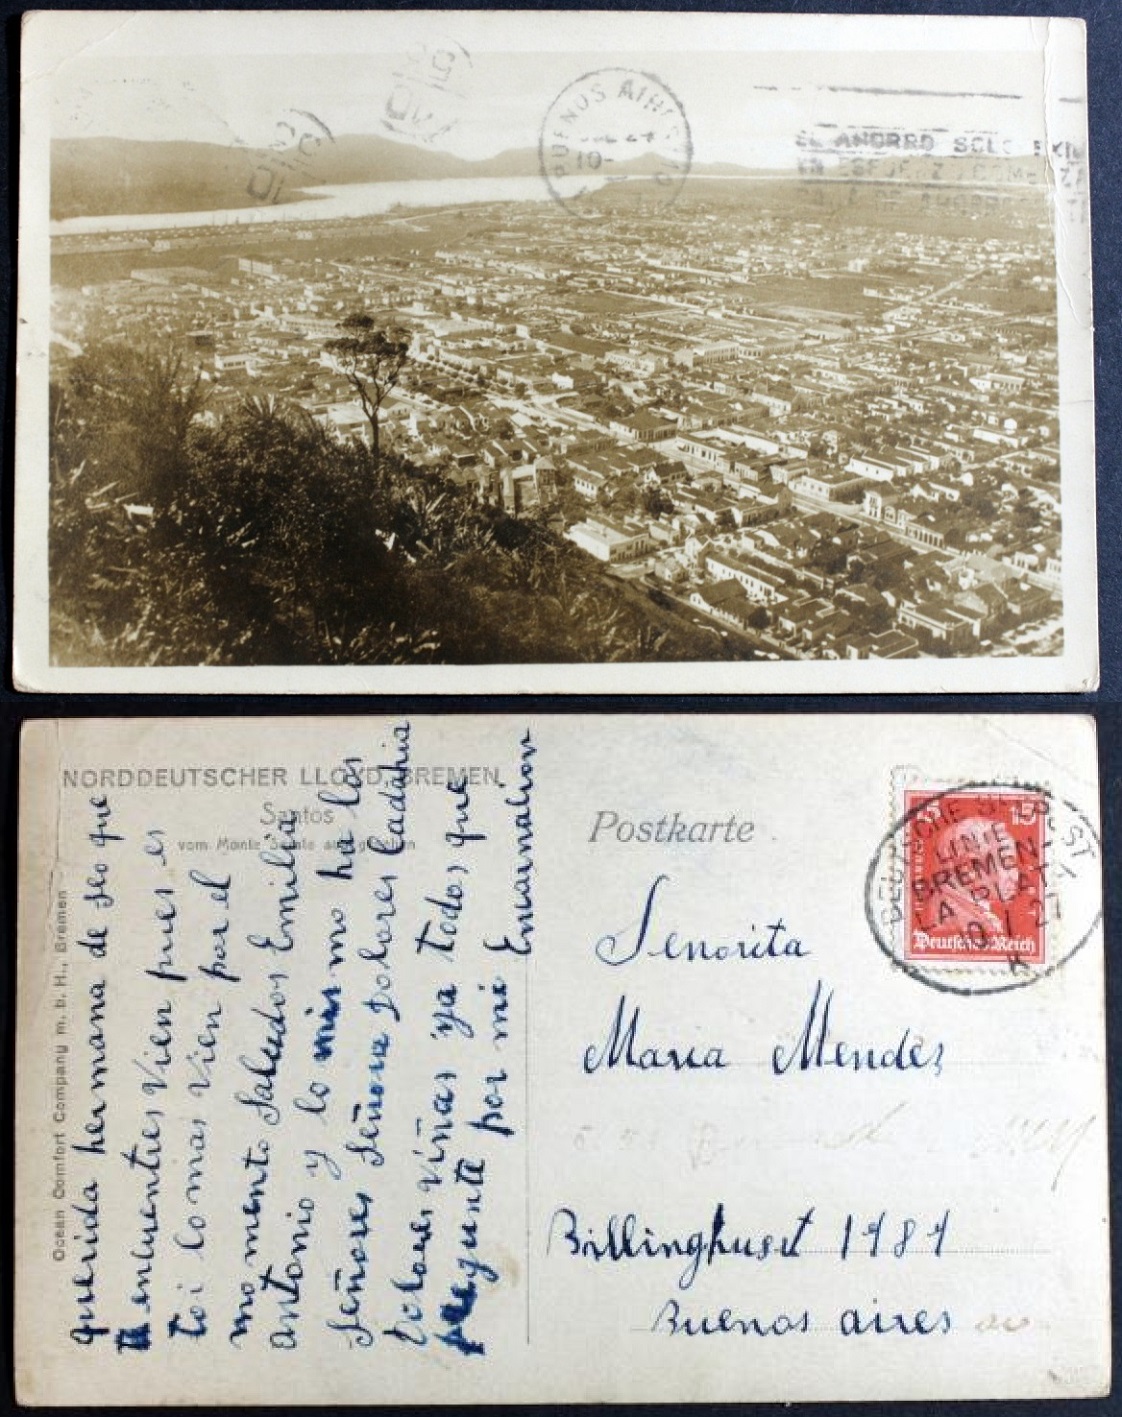 BUENOS AIRES
10-
EL AHORRO SOLO EXI
NORDDEUTSCHER LLOYD, BREMEN
Santos
vom Monte Serrate aus gesehen
Ocean Comfort Company m. b. H., Bremen
querida hermana de seo que
te encuentres vien pues es
toi lo mas vien por el
momento Saludos Emilia
antonio y lo mismo ha las
Señores Señora Dolores Cadahia
Dolores viñas ya todos que
pregunte por mi Encarnacion
Postkarte
15 15
Deutsches Reich
DEUTSCHE SEEPOST
LINIE
BREMEN-
LA PLATA
Señorita
Maria Mendez
Billinghust 1989
Buenos aires